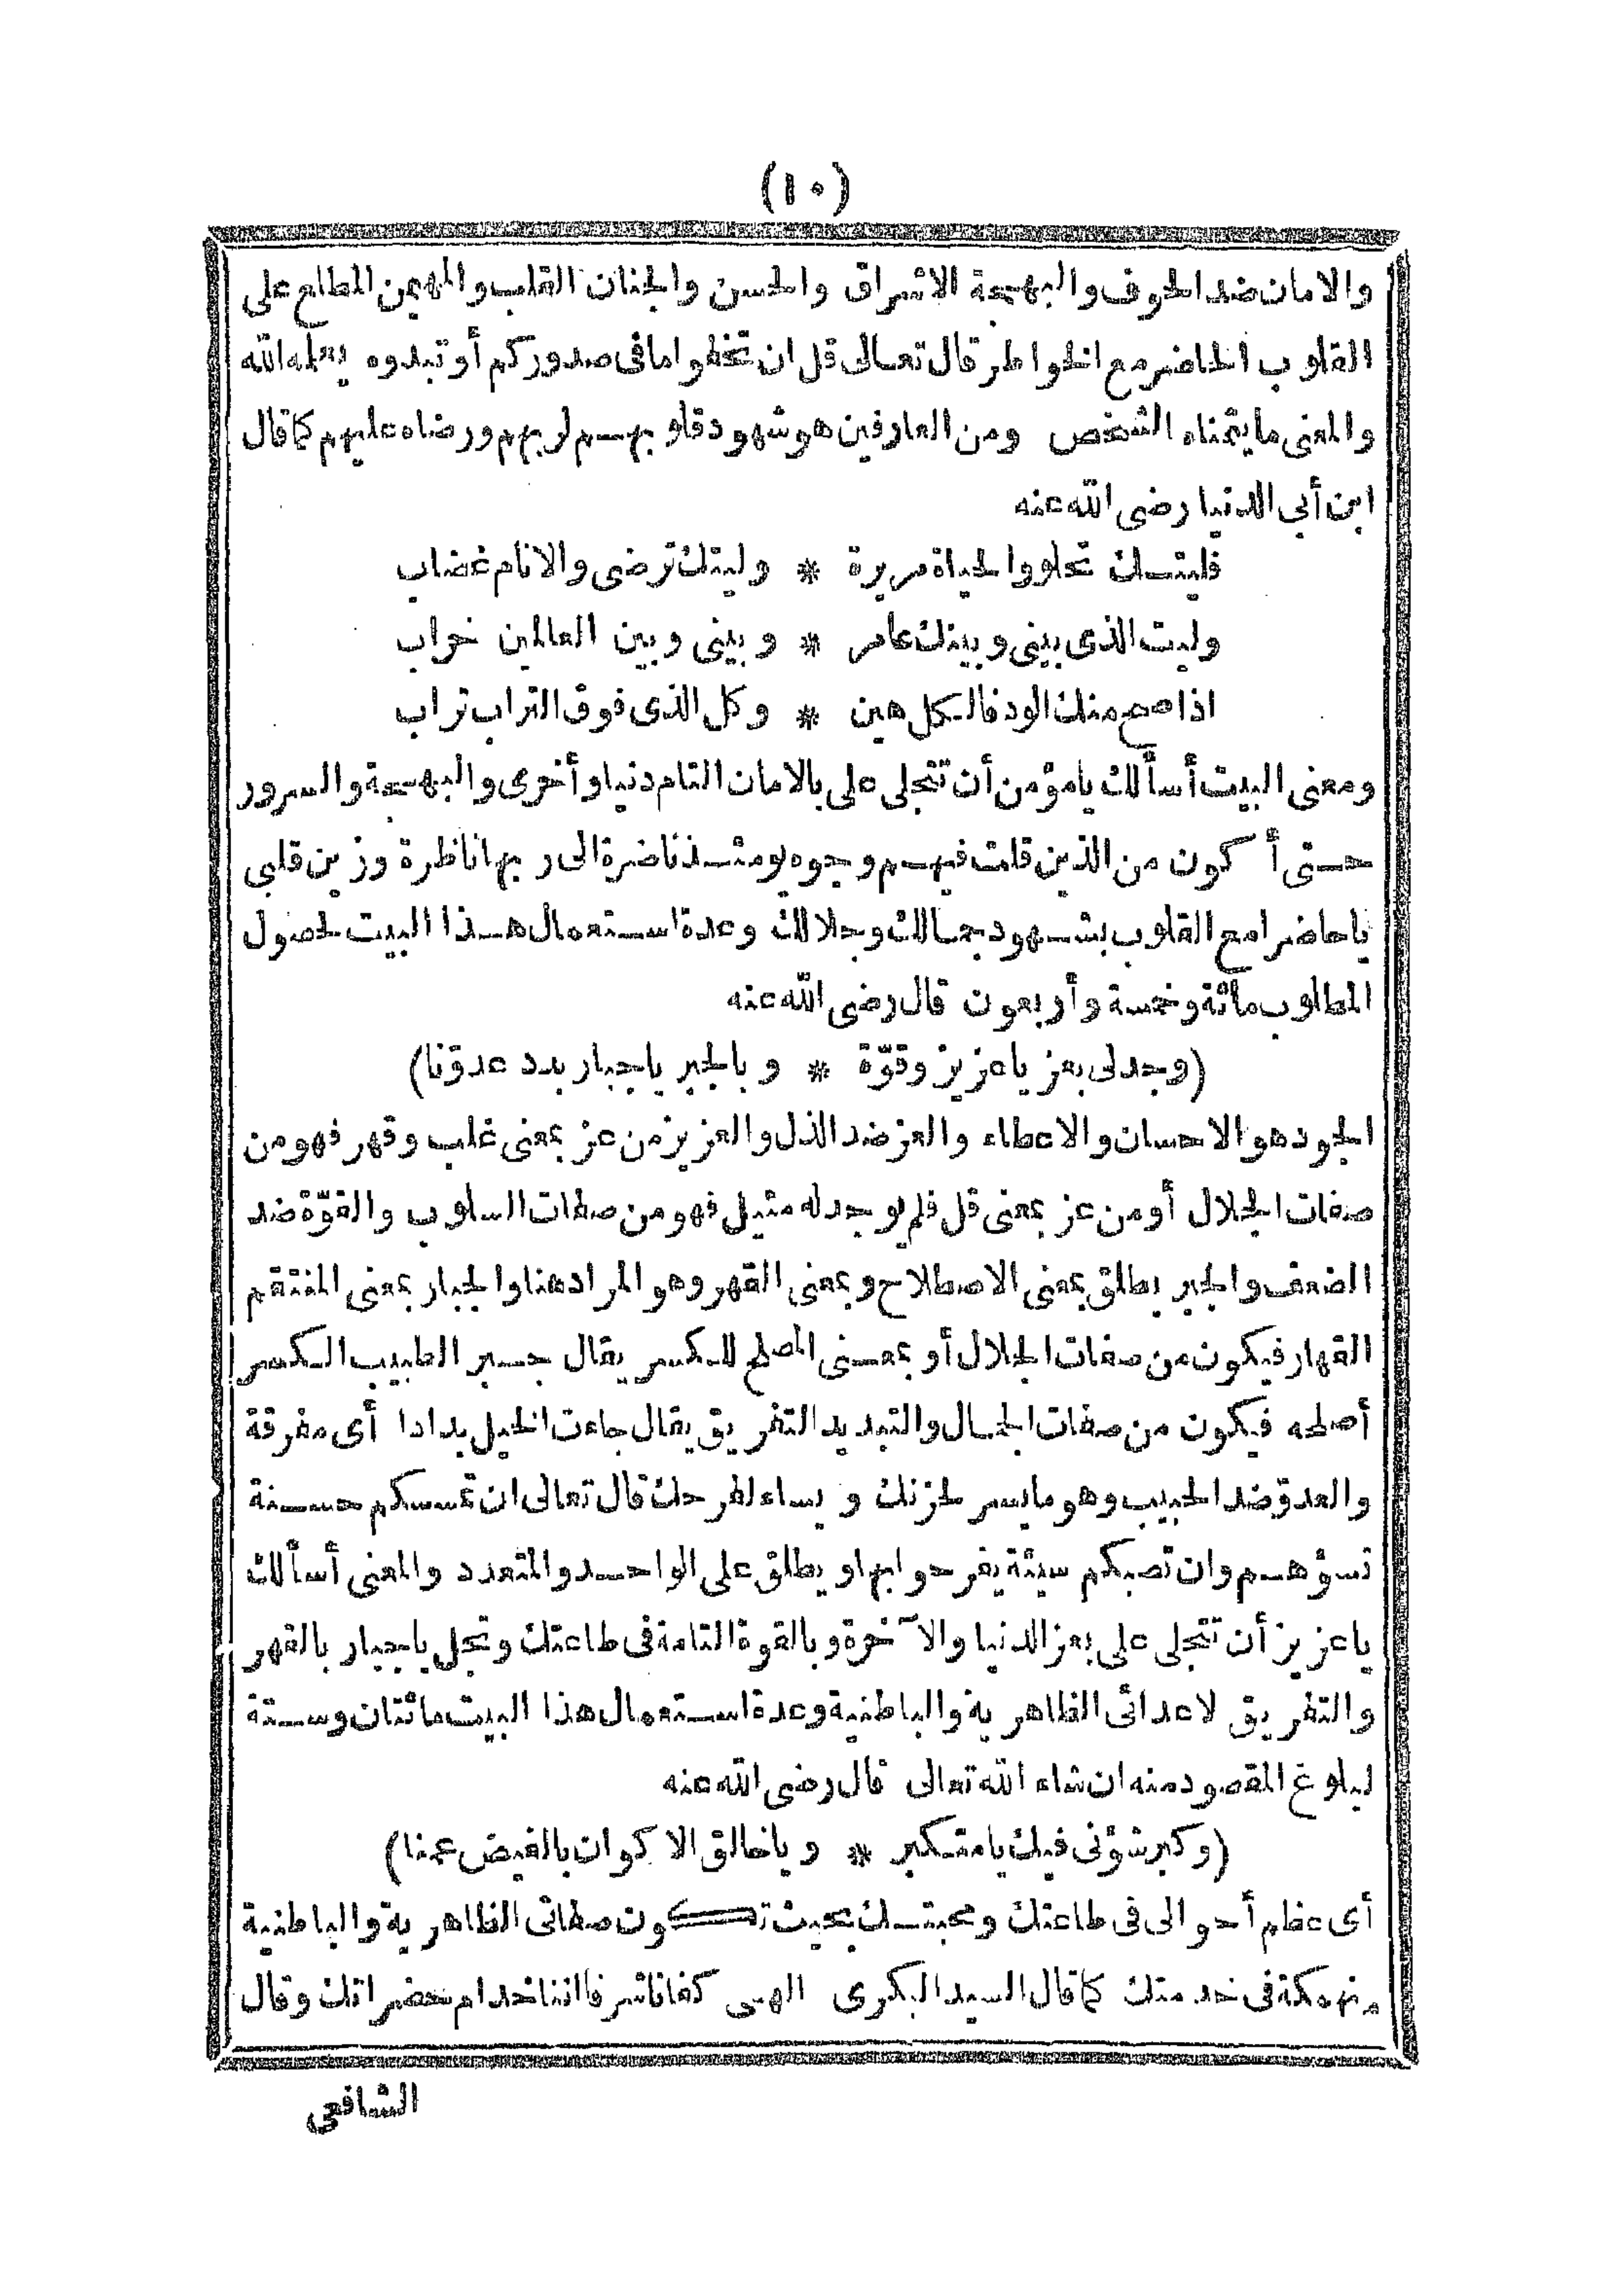 (١٠)
والامان ضد الخوف والبهجة الاشراق والحسن والجنان القلب والمهيمن المطلع على
القلوب الحاضر مع الخواطر قال تعالى قل ان تخفوا ما فى صدوركم أو تبدوه يعلمه الله
والمعنى ما يتمناه الشخص ومن العارفين هو شهود قلوبهم لربهم ورضاه عليهم كما قال
ابن أبي الدنيا رضى الله عنه
فليتك تحلو والحياة مريرة * وليتك ترضى والانام غضاب
وليت الذى بينى وبينك عامر * وبينى وبين العالمين خراب
اذا صح منك الود فالكل هين * وكل الذى فوق التراب تراب
ومعنى البيت أسألك يا مؤمن أن تتجلى على بالامان التام دنيا وأخرى والبهجة والسرور
حتى أكون من الذين قلت فيهم وجوه يومئذ ناضرة الى ربها ناظرة وزين قلبى
يا حاضرا مع القلوب بشهود جمالك وجلالك وعدة استعمال هذا البيت لحصول
المطلوب مائة وخمسة وأربعون قال رضى الله عنه
(وجد لى بعز يا عزيز وقوّة * وبالجبر يا جبار بدد عدوّنا)
الجود هو الاحسان والاعطاء والعز ضد الذل والعزيز من عز بمعنى غلب وقهر فهو من
صفات الجلال أو من عز بمعنى قل فلم يوجد له مثيل فهو من صفات السلوب والقوّة ضد
الضعف والجبر يطلق بمعنى الاصطلاح وبمعنى القهر وهو المراد هنا والجبار بمعنى المنتقم
القهار فيكون من صفات الجلال أو بمعنى المصلح للكسر يقال جبر الطبيب الكسر
أصلحه فيكون من صفات الجمال والتبديد التفريق يقال جاءت الخيل بدادا أى مفرقة
والعدوّ ضد الحبيب وهو ما يسر لحزنك ويساء لفرحك قال تعالى ان تمسسكم حسنة
تسؤهم وان تصبكم سيئة يفرحوا بها ويطلق على الواحد والمتعدد والمعنى أسألك
يا عزيز أن تتجلى على بعز الدنيا والآخرة وبالقوة التامة فى طاعتك وتجل يا جبار بالقهر
والتفريق لاعدائى الظاهرية والباطنية وعدة استعمال هذا البيت مائتان وستة
لبلوغ المقصود منه ان شاء الله تعالى قال رضى الله عنه
(وكبر شؤنى فيك يا متكبر * ويا خالق الاكوان بالفيض عمنا)
أى عظم أحوالى فى طاعتك ومحبتك بحيث تكون صفاتى الظاهرية والباطنية
منهمكة فى خدمتك كما قال السيد البكرى الهى كفانا شرفا اننا خدام حضراتك وقال
الشافعى